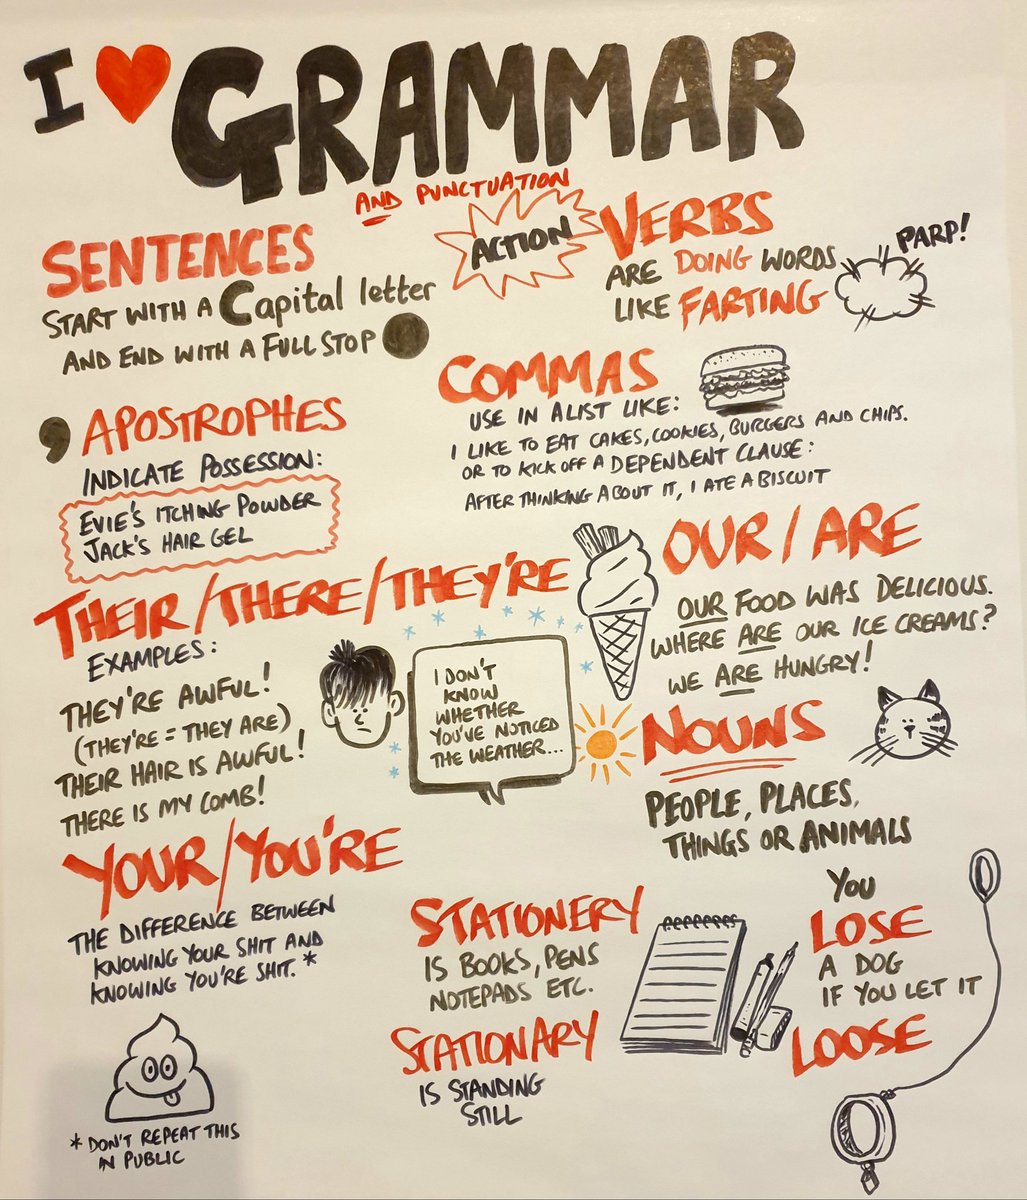 I ❤ GRAMMAR
AND PUNCTUATION
SENTENCES
START WITH A Capital letter
AND END WITH A FULL STOP
ACTION
VERBS
ARE DOING WORDS
LIKE FARTING
PARP!
, APOSTROPHES
INDICATE POSSESSION:
EVIE'S ITCHING POWDER
JACK'S HAIR GEL
COMMAS
USE IN A LIST LIKE:
I LIKE TO EAT CAKES, COOKIES, BURGERS AND CHIPS.
OR TO KICK OFF A DEPENDENT CLAUSE:
AFTER THINKING ABOUT IT, I ATE A BISCUIT
THEIR/THERE/THEY'RE
EXAMPLES:
THEY'RE AWFUL!
(THEY'RE = THEY ARE)
THEIR HAIR IS AWFUL!
THERE IS MY COMB!
I DON'T
KNOW
WHETHER
YOU'VE NOTICED
THE WEATHER...
OUR/ARE
OUR FOOD WAS DELICIOUS.
WHERE ARE OUR ICE CREAMS?
WE ARE HUNGRY!
NOUNS
PEOPLE, PLACES,
THINGS OR ANIMALS
YOUR/YOU'RE
THE DIFFERENCE BETWEEN
KNOWING YOUR SHIT AND
KNOWING YOU'RE SHIT. *
* DON'T REPEAT THIS
IN PUBLIC
STATIONERY
IS BOOKS, PENS
NOTEPADS ETC.
STATIONARY
IS STANDING
STILL
YOU
LOSE
A DOG
IF YOU LET IT
LOOSE